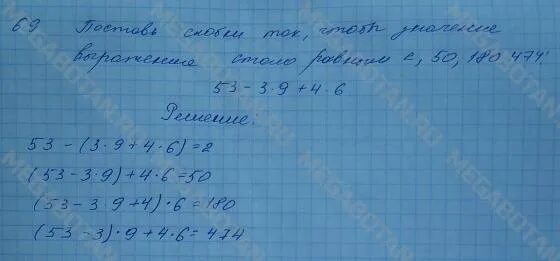 69 Поставь скобки так, чтобы значение
выражения стало равным 2, 50, 180, 474:
53 - 3 · 9 + 4 · 6
Решение:
53 - (3 · 9 + 4 · 6) = 2
(53 - 3 · 9) + 4 · 6 = 50
(53 - 3 · 9 + 4) · 6 = 180
(53 - 3) · 9 + 4 · 6 = 474
MEGABOTAN.RU